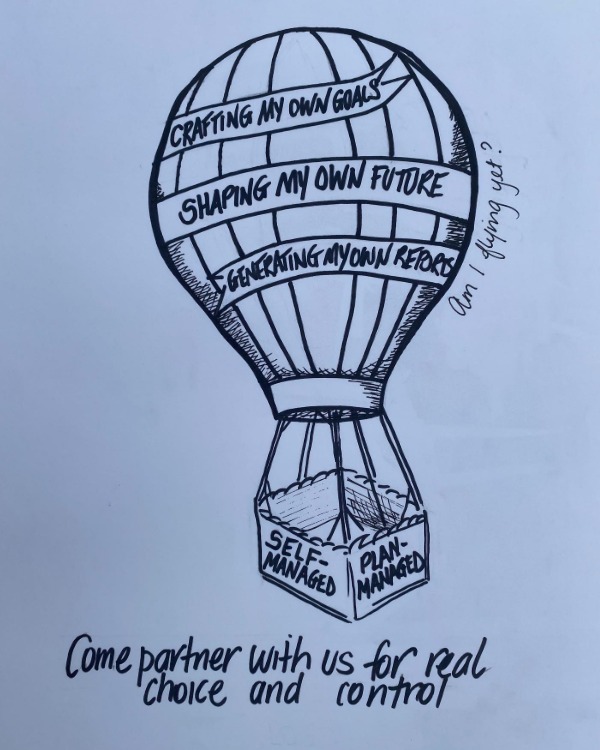 CRAFTING MY OWN GOALS
SHAPING MY OWN FUTURE
GENERATING MY OWN REPORTS
am I flying yet?
SELF-
MANAGED
PLAN-
MANAGED
Come partner with us for real
choice and control